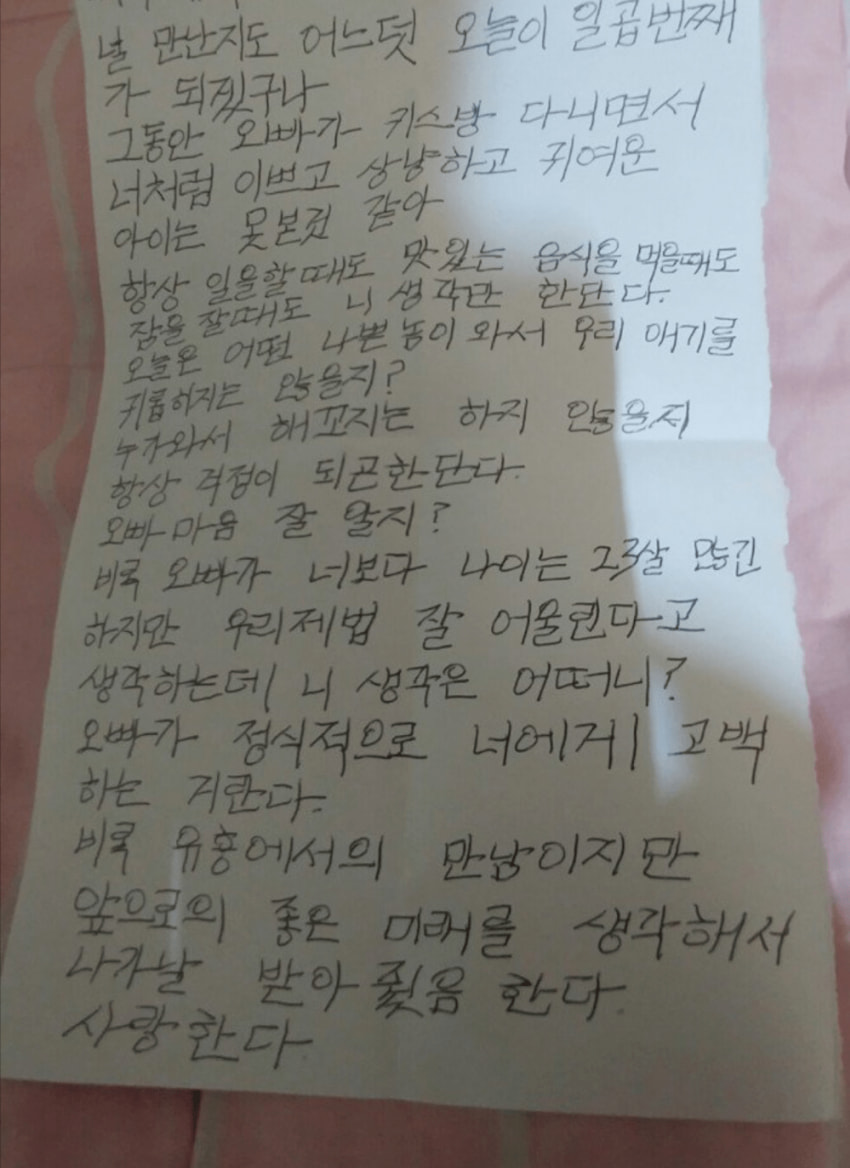 널 만난지도 어느덧 오늘이 일곱번째
가 되겠구나
그동안 오빠가 키스방 다니면서
너처럼 이쁘고 상냥하고 귀여운
아이는 못본것 같아
항상 일을할때도 맛있는 음식을 먹을때도
잠을 잘때도 니 생각만 한단다.
오늘은 어떤 나쁜놈이 와서 우리 애기를
귀롭히지는 않을지?
누가와서 해꼬지는 하지 않을지
항상 걱정이 되곤한단다.
오빠마음 잘 알지?
비록 오빠가 너보다 나이는 23살 많긴
하지만 우리제법 잘 어울린다고
생각하는데 니 생각은 어떠니?
오빠가 정식적으로 너에게 고백
하는 거란다.
비록 유흥에서의 만남이지만
앞으로의 좋은 미래를 생각해서
나가날 받아줬음 한다.
사랑한다.